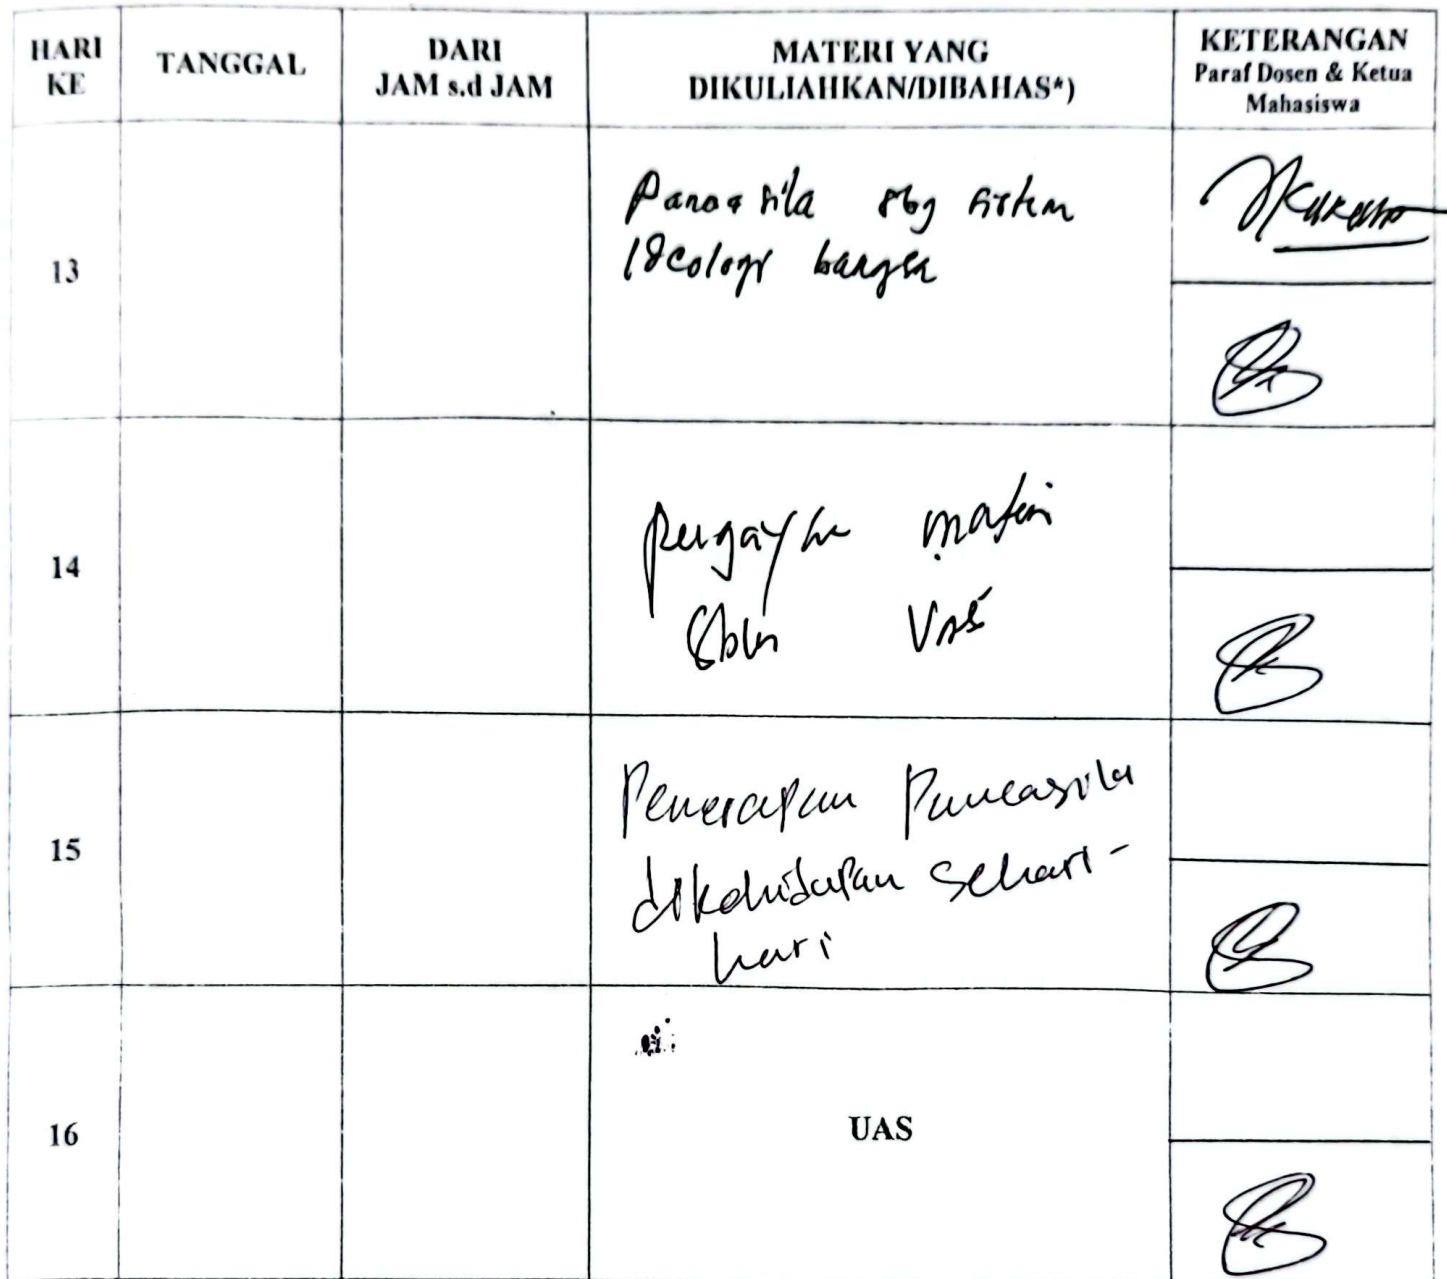 HARI KE
TANGGAL
DARI
JAM s.d JAM
MATERI YANG
DIKULIAHKAN/DIBAHAS*)
KETERANGAN
Paraf Dosen & Ketua
Mahasiswa
13
Pancasila sbg sistem
Ideologi bangsa
14
materi
sblm UAS
15
Penerapan Pancasila
dikehidupan sehari-
hari
16
UAS